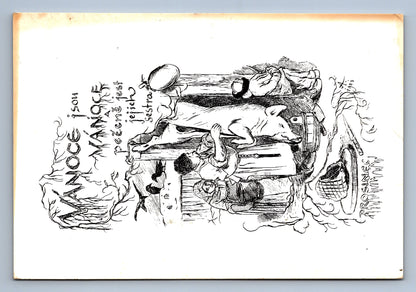 VÁNOCE jsou
VÁNOCE
pečeně jest
jejich
sestra